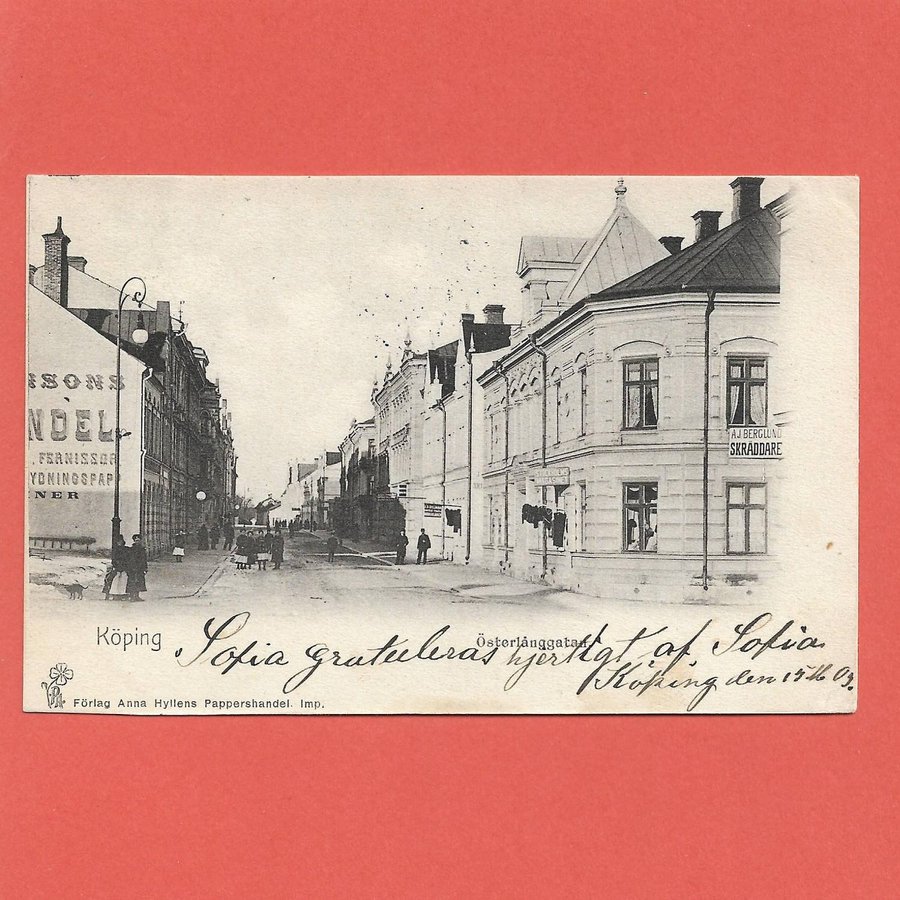 RSONS
NDEL
, FERNISSOR
YDNINGSPAP
NER
A.J BERGLUND
SKRÄDDARE
Köping
Österlånggatan
Sofia gratuleras hjertligt af Sofia
Köping den 15
Förlag Anna Hyllens Pappershandel. Imp.